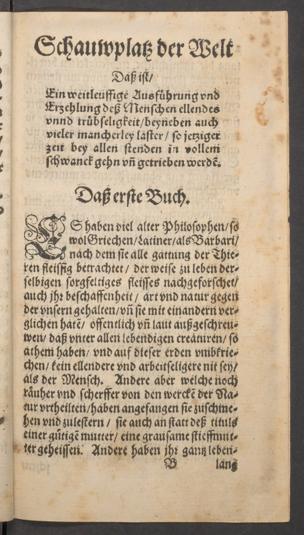 Schauwplatz der Welt
Daß ist/
Ein weitleuffige Außführung vnd
Erzehlung deß Menschen ellendes
vnnd trübseligkeit/ beyneben auch
vieler mancherley laster/ so jetziger
zeit bey allen stenden in vollem
schwanck gehn vñ getrieben werdẽ.
Daß erste Buch.
ES haben viel alter Philosophen/ so
wol Griechen/ Latiner/ als Barbari/
nach dem sie alle gattung der Thie-
ren fleissig betrachtet/ der weise zu leben der-
selbigen sorgfeltiges fleisses nachgeforschet/
auch jhr beschaffenheit/ art vnd natur gegen
der vnsern gehalten/ vñ sie mit einander ver-
glichen hatẽ/ offentlich vñ laut außgeschreu-
wen/ daß vnter allen lebendigen creaturen/ so
athem haben/ vnd auff dieser erden vmbkrie-
chen/ kein ellendere vnd arbeitseligere nit sey/
als der Mensch. Andere aber welche noch
räuher vnd scherffer von den wercken der Na-
tur vrtheilten/ haben angefangen sie zuschme-
hen vnd zulestern/ sie auch an statt deß tituls
einer gütigẽ mutter/ eine grausame stieffmut-
ter geheissen. Andere haben jhr gantz leben-
B lang